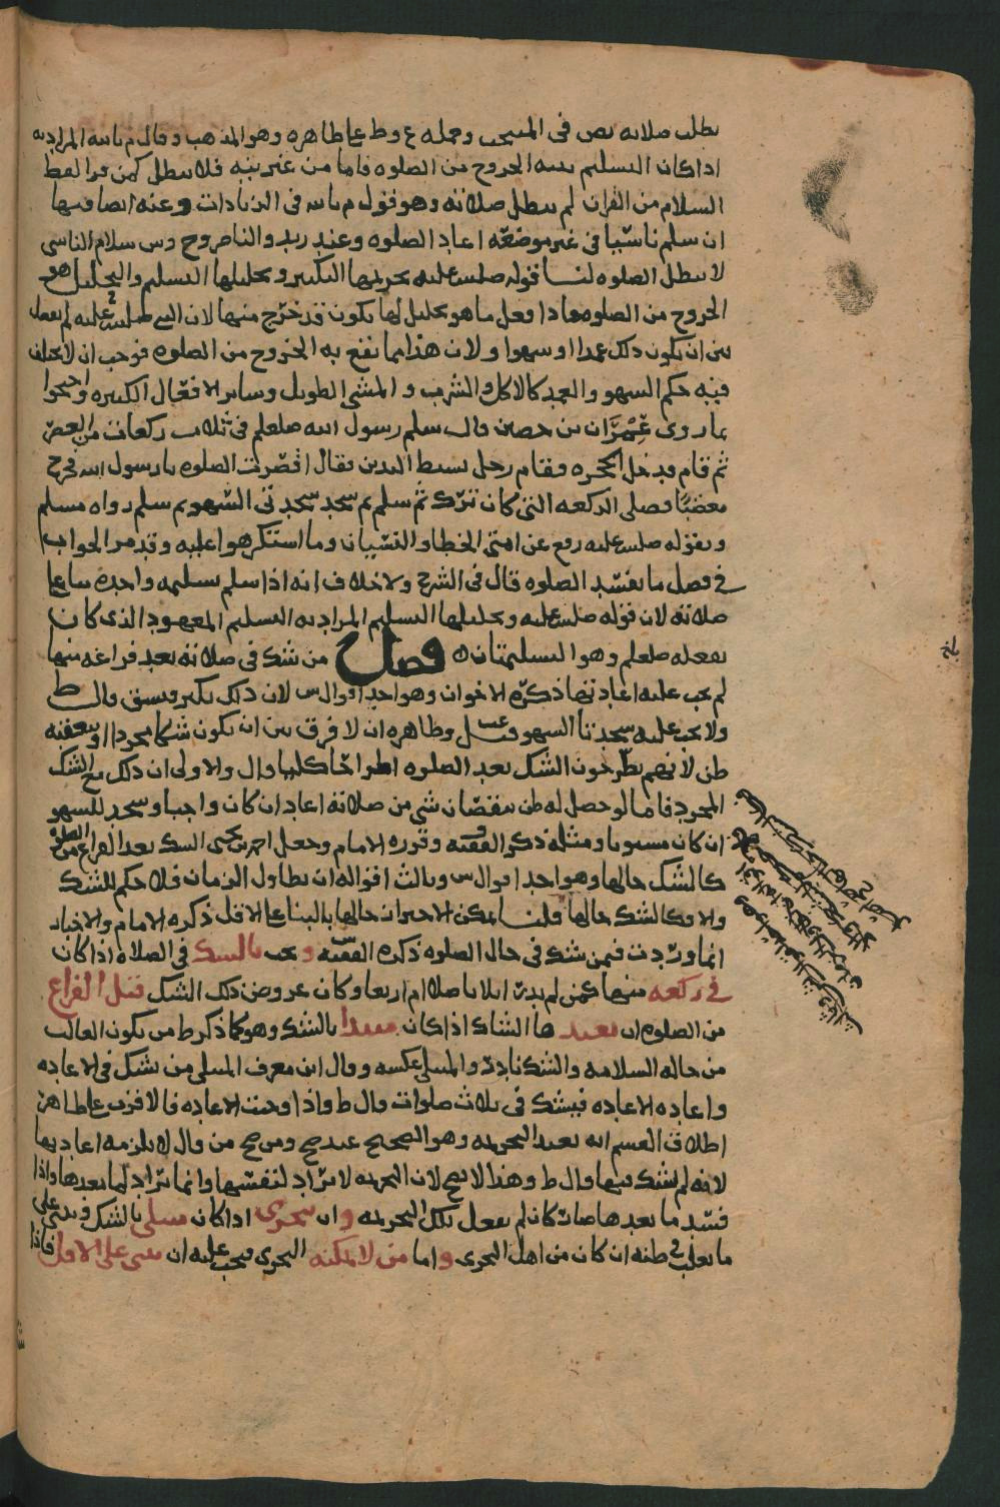 بطلت صلاته نص في المنتخب وحمله ع وط على ظاهره وهو المذهب وقال م بالله المراد به
اذا كان التسليم بنية الخروج من الصلوه فاما من غير نيه فلا تبطل كمن قرا لفظ
السلام من القران لم تبطل صلاته وهو قول م بالله في الزيادات وعنه ايضا فيها
ان سلم ناسيا في غير موضعه اعاد الصلوه وعند زيد والناصر وح وس سلام الناسي
لا يبطل الصلوه لنا قوله صلى الله عليه تحريمها التكبير وتحليلها التسليم والتحليل هو
الخروج من الصلوه فاذا فعل ما هو تحليل لها يكون قد خرج منها لان النبي صلى الله عليه لم يفصل
بين ان يكون ذلك عمدا او سهوا ولان هذا مما يقع به الخروج من الصلوه فوجب ان لا يختلف
فيه حكم السهو والعمد كالاكل والشرب والمشي الطويل وساير الافعال الكثيره واحتجوا
بما روي عمران بن حصين قال سلم رسول الله صلعلم في ثلاث ركعات من العصر
ثم قام فدخل الحجره فقام رجل بسيط اليدين فقال اقصرت الصلوه يا رسول الله فخرج
مغضبا فصلى الركعه التي كان ترك ثم سلم ثم سجد سجدتي السهو ثم سلم رواه مسلم
وبقوله صلى الله عليه رفع عن امتي الخطا والنسيان وما استكرهوا عليه وقد مر الجواب
في فصل ما يفسد الصلوه قال في الشرح ولا خلاف انه اذا سلم تسليمه واحده بنا على
صلاته لان قوله صلى الله عليه وتحليلها التسليم المراد به التسليم المعهود الذي كان
يفعله صلعلم وهو التسليمتان ه فصل من شك في صلاته بعد فراغه منها
لم يجب عليه اعادتها ذكره الاخوان وهو احد اقوال س لان ذلك يكثر ويشق قال ط
ولا يجب عليه سجدتا السهو قيل وظاهره ان لا فرق بين ان يكون شكا مجردا او يعقبه
ظن لانهم يطرحون الشك بعد الصلوه اطراحا كليا قال والاولى ان ذلك مع الشك
المجرد فاما لو حصل له ظن بنقصان شي من صلاته اعاد ان كان واجبا وسجد للسهو
ان كان مسنونا ومثله ذكر الفقيه وقرره الامام وجعل احمد بن يحيى الشك بعد الفراغ من الصلوه
كالشك حالها وهو احد اقوال س وثالث اقواله ان تطاول الزمان فلا حكم للشك
والا فكالشك حالها قلنا يمكن الاحتراز حالها بالبنا على الاقل ذكره الامام والاخبار
انما وردت فيمن شك في حال الصلوه ذكره الفقيه ويجب بالشك في الصلاه اذا كان
في ركعه منها كمن لم يدر اثلاثا صلا ام اربعا وكان عروض ذلك الشك قبل الفراغ
من الصلوه ان يعيد ها الشاك اذا كان مبتدا بالشك وهو كما ذكر ط من يكون الغالب
من حاله السلامه والشك نادر والمبتلي عكسه وقال ابن معرف المبتلي من يشك في الاعاده
واعاده الاعاده فيشك في ثلاث صلوات قال ط واذا وجبت الاعاده فالاقرب على ظاهر
اطلاق القسم انه يعيد التحريمه وهو الصحيح عند ح ومن ح من قال لا يلزمه اعادتها
لانه لم يشك فيها قال ط وهذا لا يصح لان التحريمه لا تراد لنفسها وانما تراد لما بعدها واذا
فسد ما بعدها صار كان لم يفعل تلك التحريمه وان يتحرى اذا كان مبتلى بالشك ويبني على
ما يغلب في ظنه ان كان من اهل التحري واما من لا يمكنه التحري فيجب عليه ان يبني على الاقل فاذا